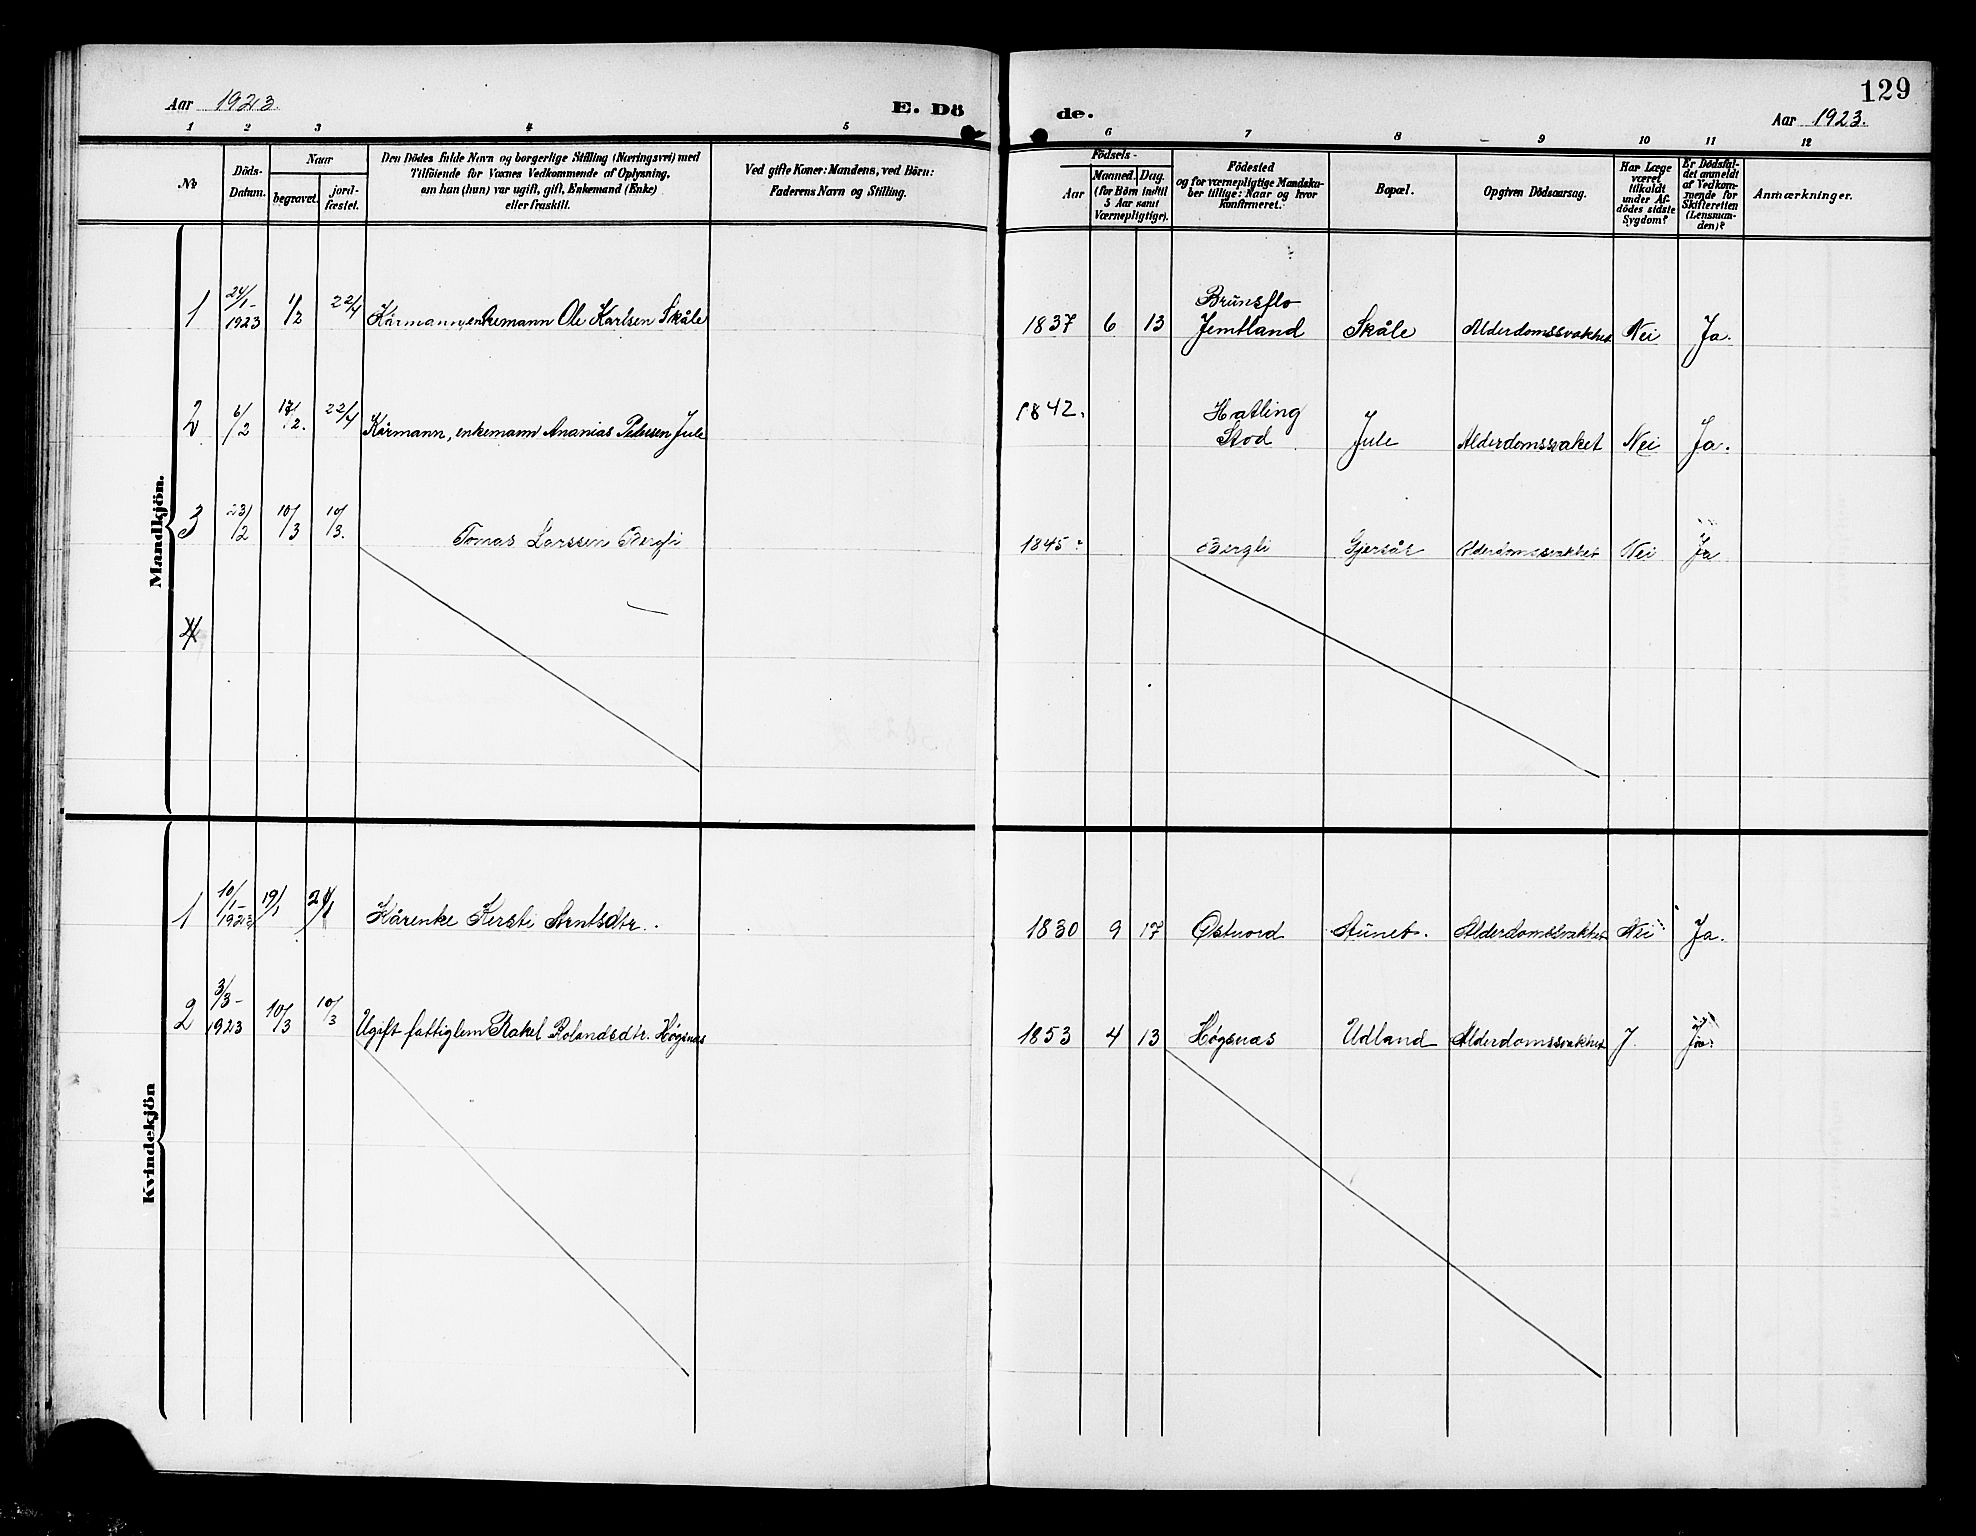 Aar 1923.
E. Dö
de.
129
Aar 1923.
1 2 3 4 5 6 7 8 9 10 11 12
№
Döds-
Datum.
Naar
begravet.
jord-
fæstet.
Den Dödes fulde Navn og borgerlige Stilling (Næringsvei) med
Tilföiende for Voxnes Vedkommende af Oplysning,
om han (hun) var ugift, gift, Enkemand (Enke)
eller fraskilt.
Ved gifte Koner: Mandens, ved Börn:
Faderens Navn og Stilling.
Födsels-
Aar
Maaned. Dag.
(for Börn indtil
5 Aar samt
Værnepligtige).
Födested
og for værnepligtige Mandska-
ber tillige: Naar og hvor
Konfirmeret.
Bopæl.
Opgiven Dödsaarsag.
Har Læge
været
tilkaldt
under Af-
dödes sidste
Sygdom?
Er Dödsfal-
det anmeldt
af Vedkom-
mende for
Skifteretten
(Lensman-
den)?
Anmærkninger.
Mandkjön.
1 24/1-1923 1/2 22/4 Kårmann, enkemann Ole Karlsen Skåle 1837 6 13 Brunsflo Jemtland Skåle Alderdomssvakhet Nei Ja.
2 6/2 17/2. 22/4 Kårmann, enkemann Ananias Petersen Jule 1842. Hatling Stod Jule Alderdomssvaket Nei Ja.
3 23/2 10/3 10/3. Tomas Larssen Bergli 1845 Bergli Gjersås Alderdomssvakhet Nei Ja
4
Kvindekjön
1 10/1-1923 19/1 Kårenke Kersti Arntsdtr. 1830 9 17 Østnord Alderdomssvakhet Nei Ja.
2 3/3-1923 10/3 10/3 Ugift fattiglem Rakel Rolandsdtr. Høgsnæs 1853 4 13 Høgsnæs Udland Alderdomssvakhet J Ja.